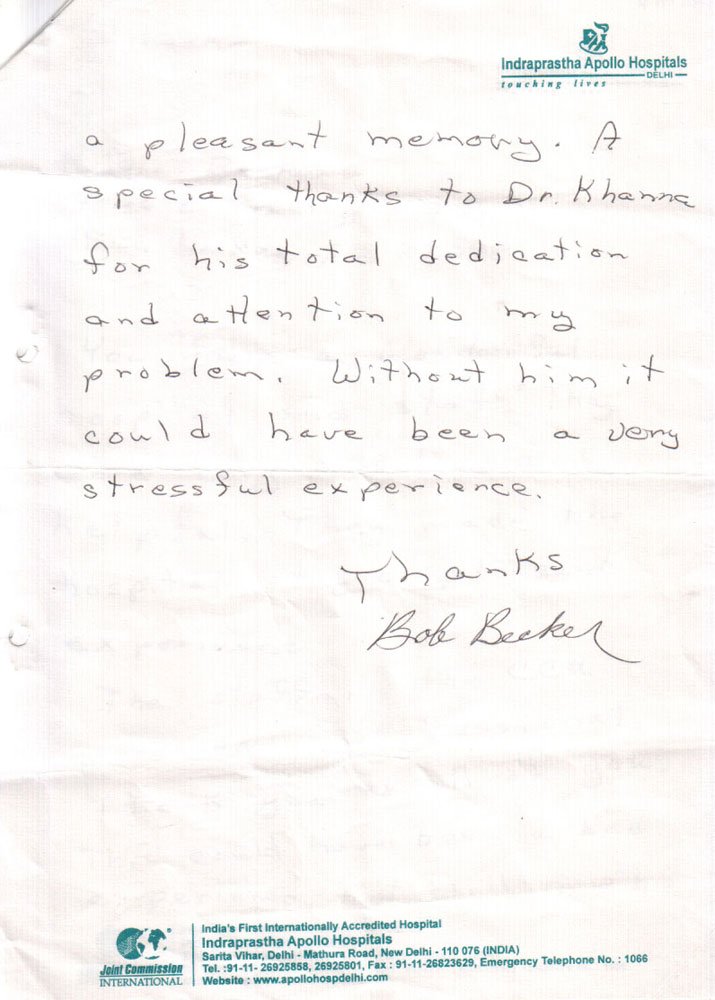 Indraprastha Apollo Hospitals
DELHI
touching lives
a pleasant memory. A
special thanks to Dr. Khanna
for his total dedication
and attention to my
problem. Without him it
could have been a very
stressful experience.
Thanks
Bob Becker
India's First Internationally Accredited Hospital
Indraprastha Apollo Hospitals
Sarita Vihar, Delhi - Mathura Road, New Delhi - 110 076 (INDIA)
Tel. :91-11- 26925858, 26925801, Fax : 91-11-26823629, Emergency Telephone No. : 1066
Website : www.apollohospdelhi.com
Joint Commission
INTERNATIONAL